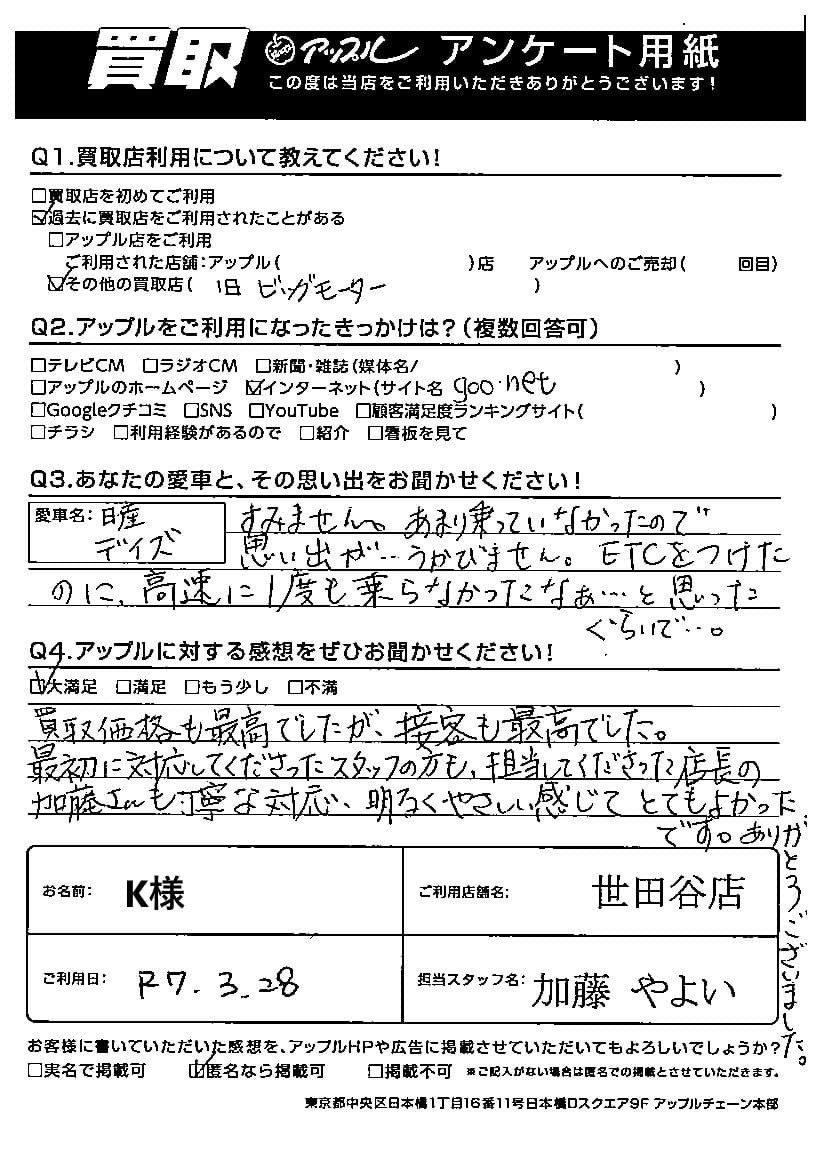 買取 アップル アンケート用紙
この度は当店をご利用いただきありがとうございます！
Q1.買取店利用について教えてください！
□買取店を初めてご利用
☑過去に買取店をご利用されたことがある
□アップル店をご利用
ご利用された店舗：アップル（　）店　アップルへのご売却（　回目）
☑その他の買取店（ 旧 ビッグモーター ）
Q2.アップルをご利用になったきっかけは？（複数回答可）
□テレビCM □ラジオCM □新聞・雑誌（媒体名/　）
□アップルのホームページ ☑インターネット（サイト名 goo.net ）
□Googleクチコミ □SNS □YouTube □顧客満足度ランキングサイト（　）
□チラシ □利用経験があるので □紹介 □看板を見て
Q3.あなたの愛車と、その思い出をお聞かせください！
愛車名： 日産 デイズ
すみません。あまり乗っていなかったので
思い出が…うかびません。ETCをつけた
のに、高速に1度も乗らなかったなぁ…と思った
ぐらいで…。
Q4.アップルに対する感想をぜひお聞かせください！
☑大満足 □満足 □もう少し □不満
買取価格も最高でしたが、接客も最高でした。
最初に対応してくださったスタッフの方も、担当してくださった店長の
加藤さんも丁寧な対応、明るくやさしい感じで とてもよかった
です。ありがとうございました。
お名前： K様
ご利用店舗名： 世田谷店
ご利用日： R7.3.28
担当スタッフ名： 加藤 やよい
お客様に書いていただいた感想を、アップルHPや広告に掲載させていただいてもよろしいでしょうか？
□実名で掲載可 ☑匿名なら掲載可 □掲載不可 ※ご記入がない場合は匿名での掲載とさせていただきます。
東京都中央区日本橋1丁目16番11号日本橋Dスクエア9F アップルチェーン本部